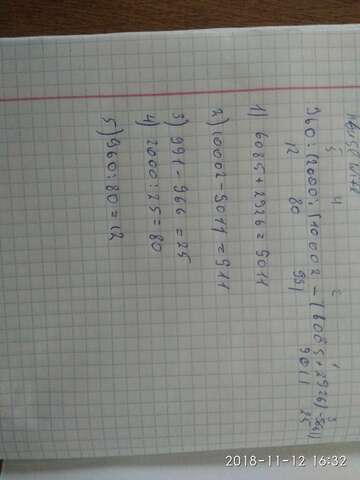 960:(2000:(10002-(6085+2926)-966))
12 80 991 9011 25
1) 6085+2926=9011
2) 10002-9011=911
3) 991-966=25
4) 2000:25=80
5) 960:80=12
2018-11-12 16:36